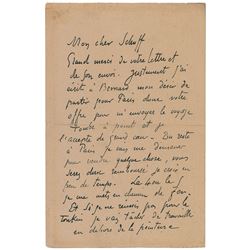 Mon cher Schuff
Grand merci de votre lettre et
de son envoi. Justement j'ai
écrit à Bernard mon désir de
partir pour Paris donc votre
offre pour m'envoyer le voyage
tombe à point et je
l'accepte de grand cœur. Du reste
à Paris je vais me démener
pour vendre quelque chose, vous
serez donc remboursé je crois en
peu de temps. Le
je me mets en chemin de fer.
Et si je ne réussis pas pour le
Tonkin je vais tâcher de travailler
en dehors de la peinture